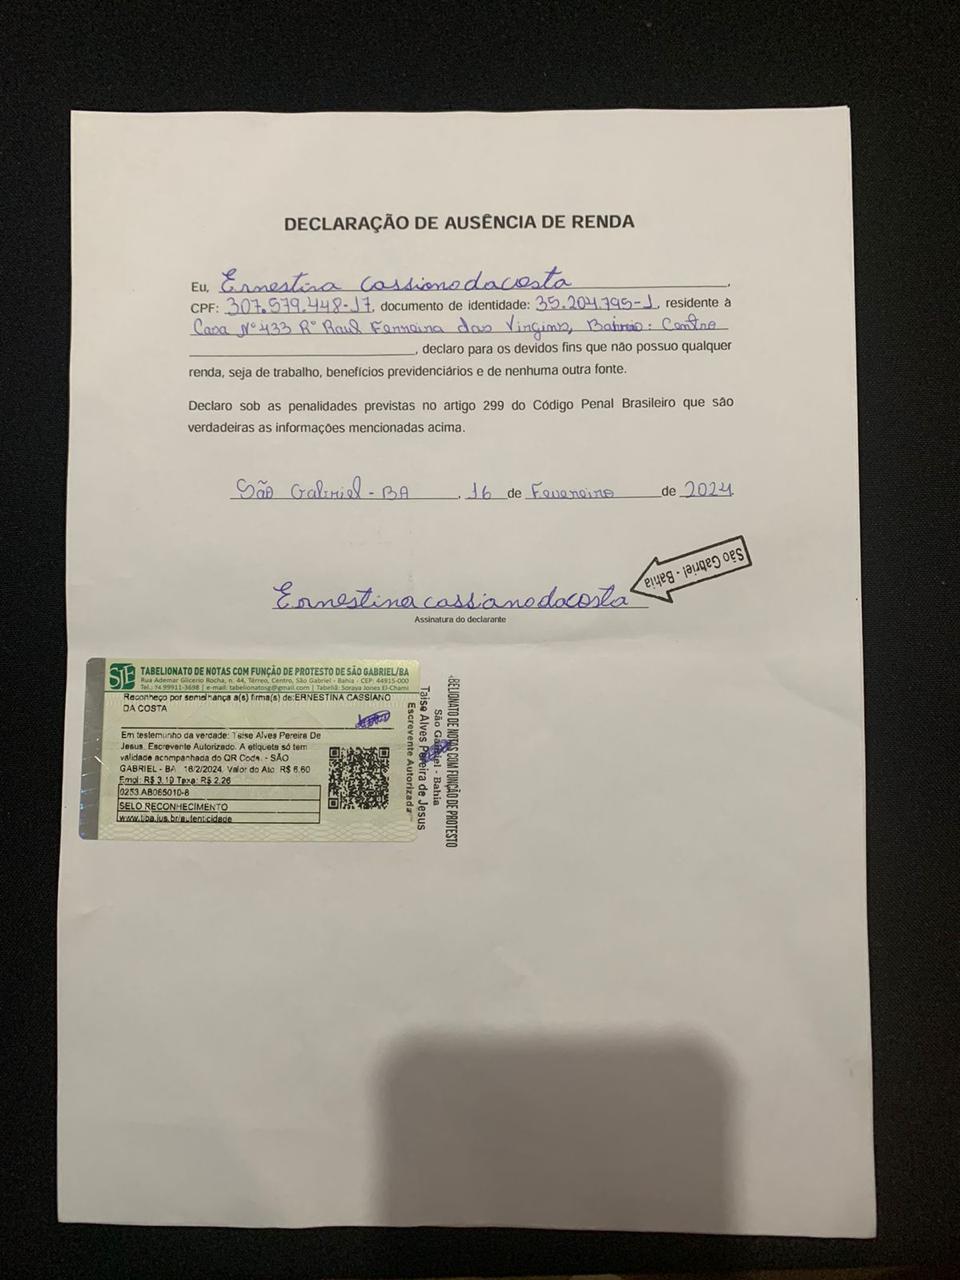 DECLARAÇÃO DE AUSÊNCIA DE RENDA
Eu, Ernestina Cassiano da costa,
CPF: 307.579.448-17, documento de identidade: 35.204.795-1, residente à
Casa Nº 433 Rª Raul Ferreira das Virgins, Bairro: Centro
, declaro para os devidos fins que não possuo qualquer
renda, seja de trabalho, benefícios previdenciários e de nenhuma outra fonte.
Declaro sob as penalidades previstas no artigo 299 do Código Penal Brasileiro que são
verdadeiras as informações mencionadas acima.
São Gabriel - BA, 16 de Fevereiro de 2024
São Gabriel - Bahia
Ernestina cassiano da costa
Assinatura do declarante
SJE TABELIONATO DE NOTAS COM FUNÇÃO DE PROTESTO DE SÃO GABRIEL/BA
Rua Ademar Glicerio Rocha, n. 44, Térreo, Centro, São Gabriel - Bahia - CEP: 44915-000
Tel.: 74 99911-3698 | e-mail: tabelionatosg@gmail.com | Tabeliã: Soraya Jones El-Chami
Reconheço por semelhança a(s) firma(s) de:ERNESTINA CASSIANO
DA COSTA
Em testemunho da verdade: Taise Alves Pereira De
Jesus. Escrevente Autorizado. A etiqueta só tem
validade acompanhada do QR Code. - SÃO
GABRIEL - BA 16/2/2024. Valor do Ato: R$ 6.60
Emol: R$ 3.19 Taxa: R$ 2.26
0253.AB065010-8
SELO RECONHECIMENTO
www.tjba.jus.br/autenticidade
BELIONATO DE NOTAS COM FUNÇÃO DE PROTESTO
São Gabriel - Bahia
Taise Alves Pereira de Jesus
Escrevente Autorizada